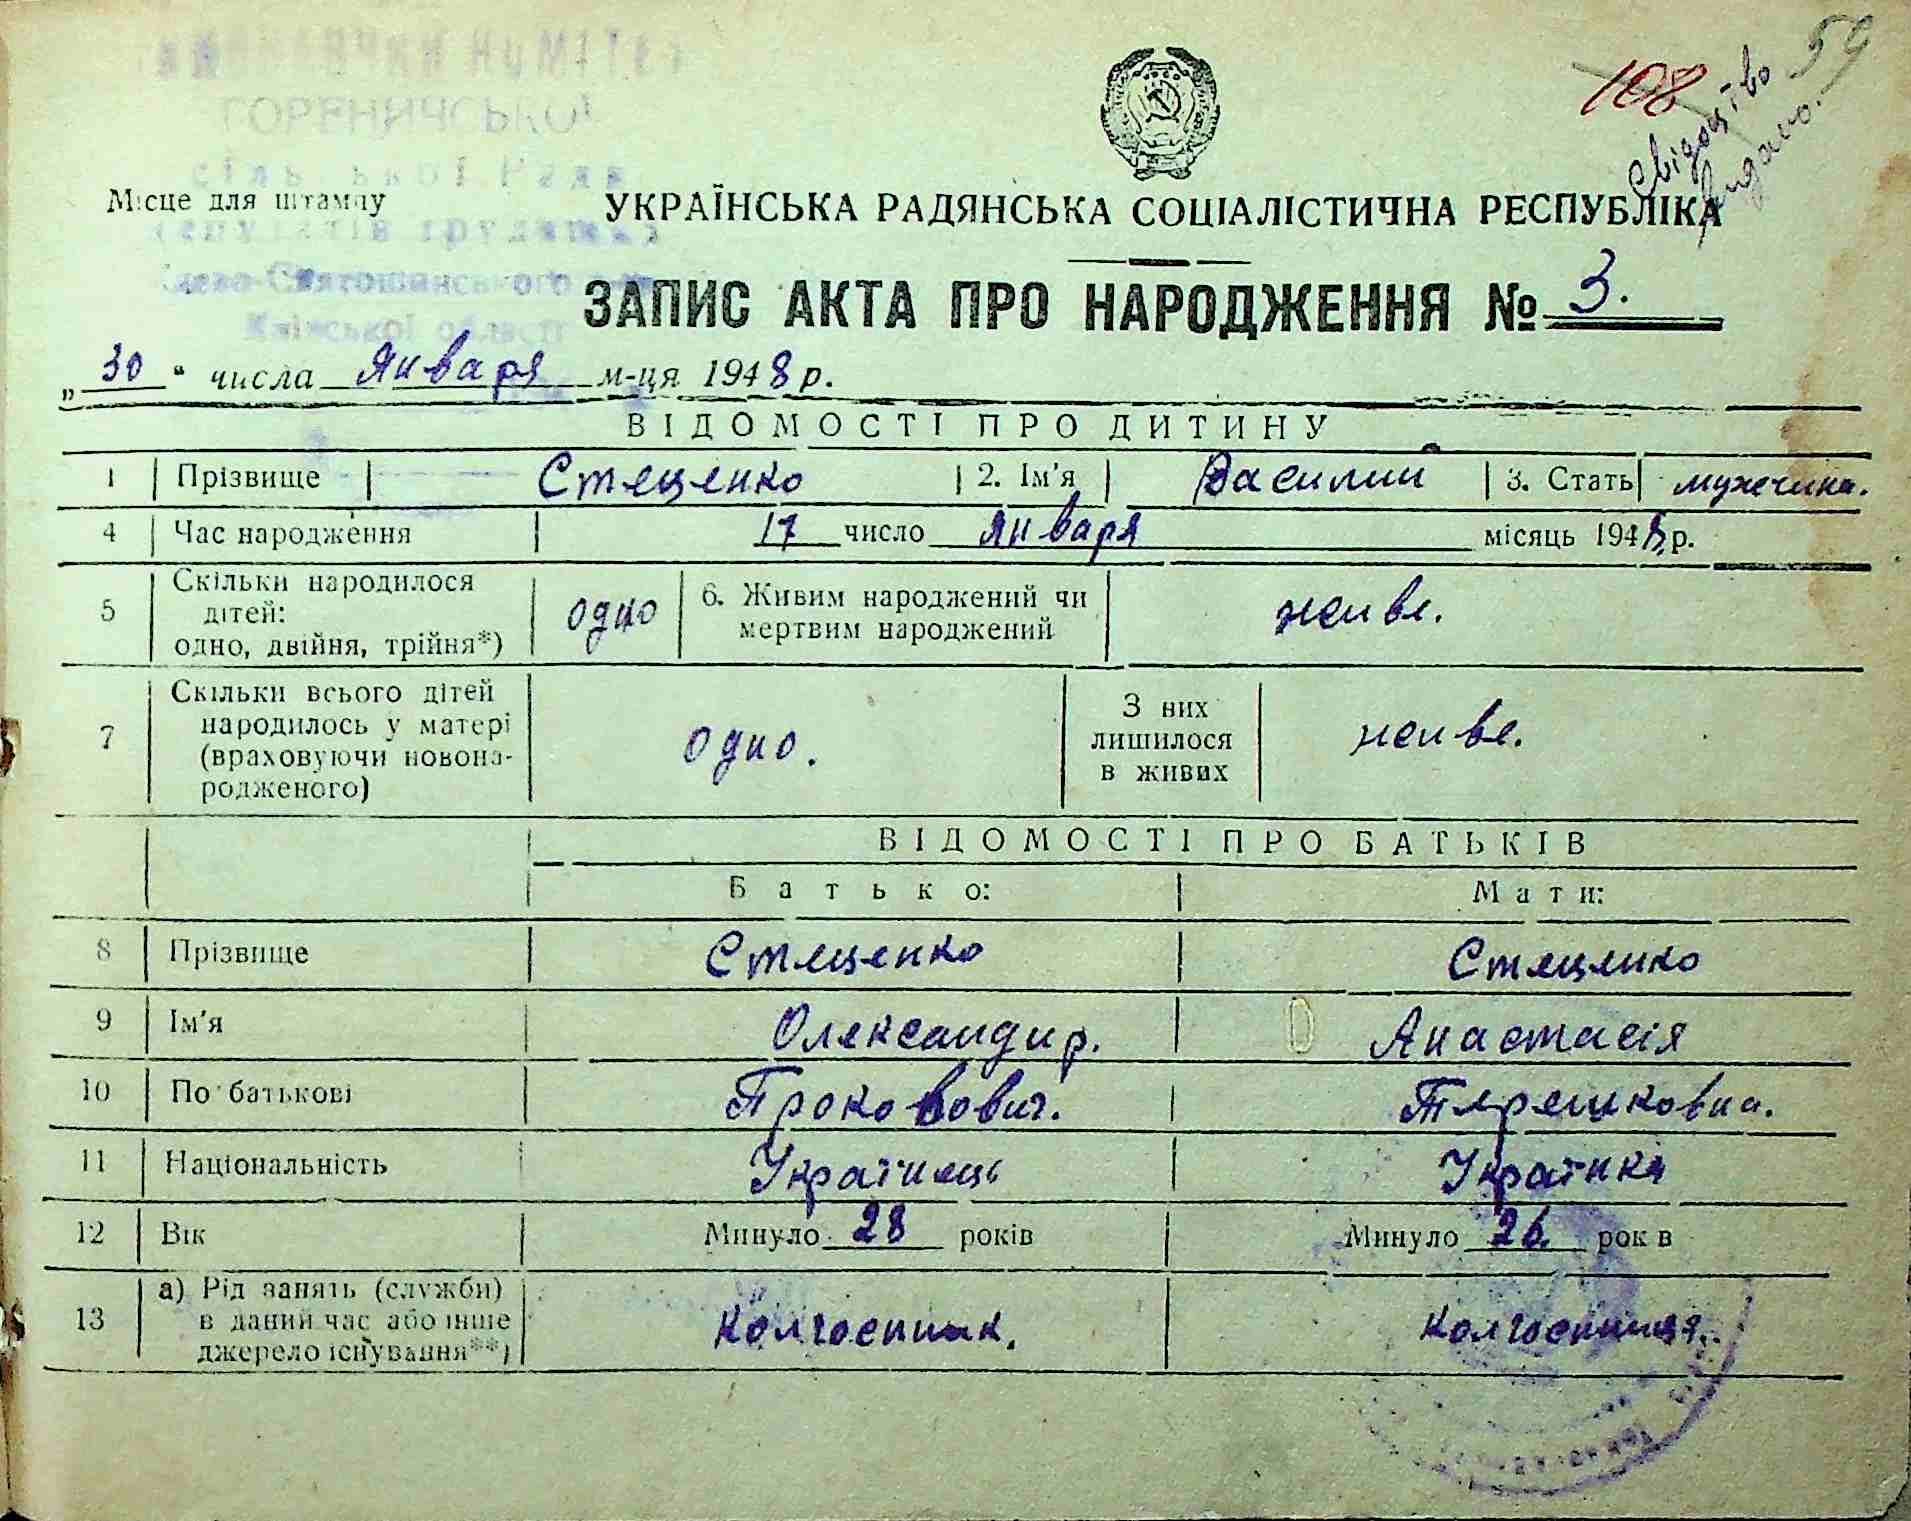 59
108
Свідоцтво
видано.
ГОРЕНИЧСЬКОЇ
сільської Ради
депутатів трудящих
Києво-Святошинського р-ну
Київської області
Місце для штампу
УКРАЇНСЬКА РАДЯНСЬКА СОЦІАЛІСТИЧНА РЕСПУБЛІКА
ЗАПИС АКТА ПРО НАРОДЖЕННЯ № 3.
„30" числа Января м-ця 1948 р.
ВІДОМОСТІ ПРО ДИТИНУ
1 Прізвище Стеценко 2. Ім'я Василий 3. Стать мужчина.
4 Час народження 17 число Января місяць 1948 р.
5 Скільки народилося дітей: одно, двійня, трійня*) одно 6. Живим народжений чи мертвим народжений живе.
7 Скільки всього дітей народилось у матері (враховуючи новонародженого) одно. З них лишилося в живих живе.
ВІДОМОСТІ ПРО БАТЬКІВ
Батько: Мати:
8 Прізвище Стеценко Стеценко
9 Ім'я Олександир. Анастасія
10 По батькові Проковович. Терешковна.
11 Національність Українець Українка
12 Вік Минуло 28 років Минуло 26. рок в
13 а) Рід занять (служби) в даний час або інше джерело існування**) Колгоспник. Колгоспниця.